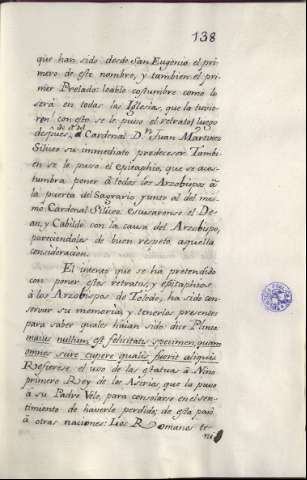 138
que han sido desde San Eugenio el pri-
mero de este nombre, y tambien el pri-
mer Prelado: loable costumbre como lo
será en todas las Iglesias, que la tuvie-
ren con esto se le puso el retrato luego
despues, de el del Cardenal Dn. Juan Martinez
Siliceo su immediato predecesor Tambi-
en se le puso el epitaphio, que se acos-
tumbra poner á todos los Arzobispos á
la puerta del Sagrario junto al del mes-
mo Cardenal Siliceo. Escusaronse el De-
an, y Cabildo con la causa del Arzobispo,
pareciendoles de buen respeto aquella
consideracion.
El intento que se há pretendido
con poner estos retratos, y epitaphios
á los Arzobispos de Toledo, ha sido con-
servar su memoria, y tenerlos presentes
para saber quales haian sido: dice Plinio
maius nullum est felicitatis specimen, quam
omnes scire cupere qualis fuerit aliquis
Refierese el uso de las estatuas á Nino
primero Rey de los Asirios, que la puso
á su Padre Velo, para consolarse en el sen-
timiento de haverle perdido; de esta pasó
á otras naciones: Los Romanos te-
ni